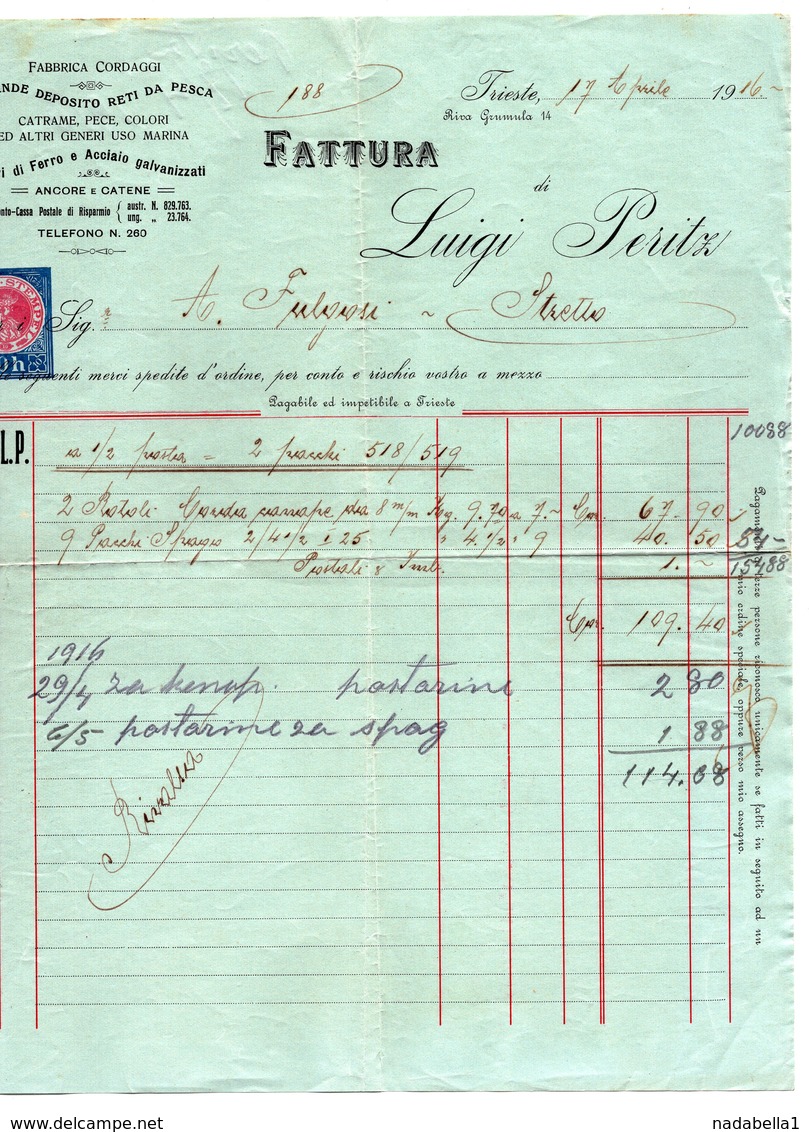 FABBRICA CORDAGGI
NDE DEPOSITO RETI DA PESCA
CATRAME, PECE, COLORI
ED ALTRI GENERI USO MARINA
i di Ferro e Acciaio galvanizzati
ANCORE E CATENE
nto-Cassa Postale di Risparmio { austr. N. 829.763.
ung. „ 23.764.
TELEFONO N. 260
188
Trieste, 17 Aprile 1916.
Riva Grumula 14
FATTURA
di
Luigi Peritz
STEMPEL
0 h
Sig.r A. Fulgosi ~ Stretto
seguenti merci spedite d'ordine, per conto e rischio vostro a mezzo
Pagabile ed impetibile a Trieste
L.P.
a 1/2 posta = 2 pacchi 518/519
10088
2 Rotoli Corda canape da 8 m/m Kg. 9.70 a 7.~ Cor. 67.90
9 Pacchi Spago 2/4 1/2 : 25 " 4.1/2 " 9 40.50 54-
Postali & Imb. 1.~ 15488
Cor. 109.40
1916
29/4 za kenap. postarine 2 80
6/5 postarine za spag 1 88
114.08
Pagamenti a terze persone riconosco unicamente se fatti in seguito ad un
mio ordine speciale oppure verso mio assegno.
www.delcampe.net
nadabella1